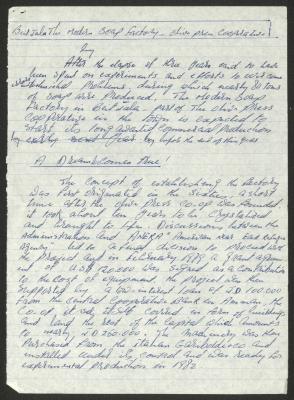 Burjala The Modern Soap Factory - Olive press Cooperative
By
After the lapse of three years and to have
been spent on experiments and efforts to overcome
technical Problems, during which nearly 20 tons
of soaps are Produced, The Modern Soap
Factory in part of The Olive Press
Cooperative in the town is expected to
start its long awaited Commercial Production
by early next year before the end of this year
A Dream Comes True!
The Concept of establishing the factory
was first originated in the sixties, a short
time after the olive press Co.op was founded
it took about ten years to be Crystalized
and brought to the Discussions between the
administration and "American near East refugee
agency" led to a final decision to proceed with
the project and in February 1979 a grant agreem-
ent of U.S$ 120.000 was signed as a Contribution
to the Cost of equipment. The project was then
supported by a Government loan of J.D 100.000
from the Central Cooperative Bank in Amman, the
Co.op, it self carried in form of buildings
and land the rest of the Capital which amounts
to nearly J.D 250.000. The machinery was then
Purchased from the italian
installed under its control and was ready for
experimental Production in 1982